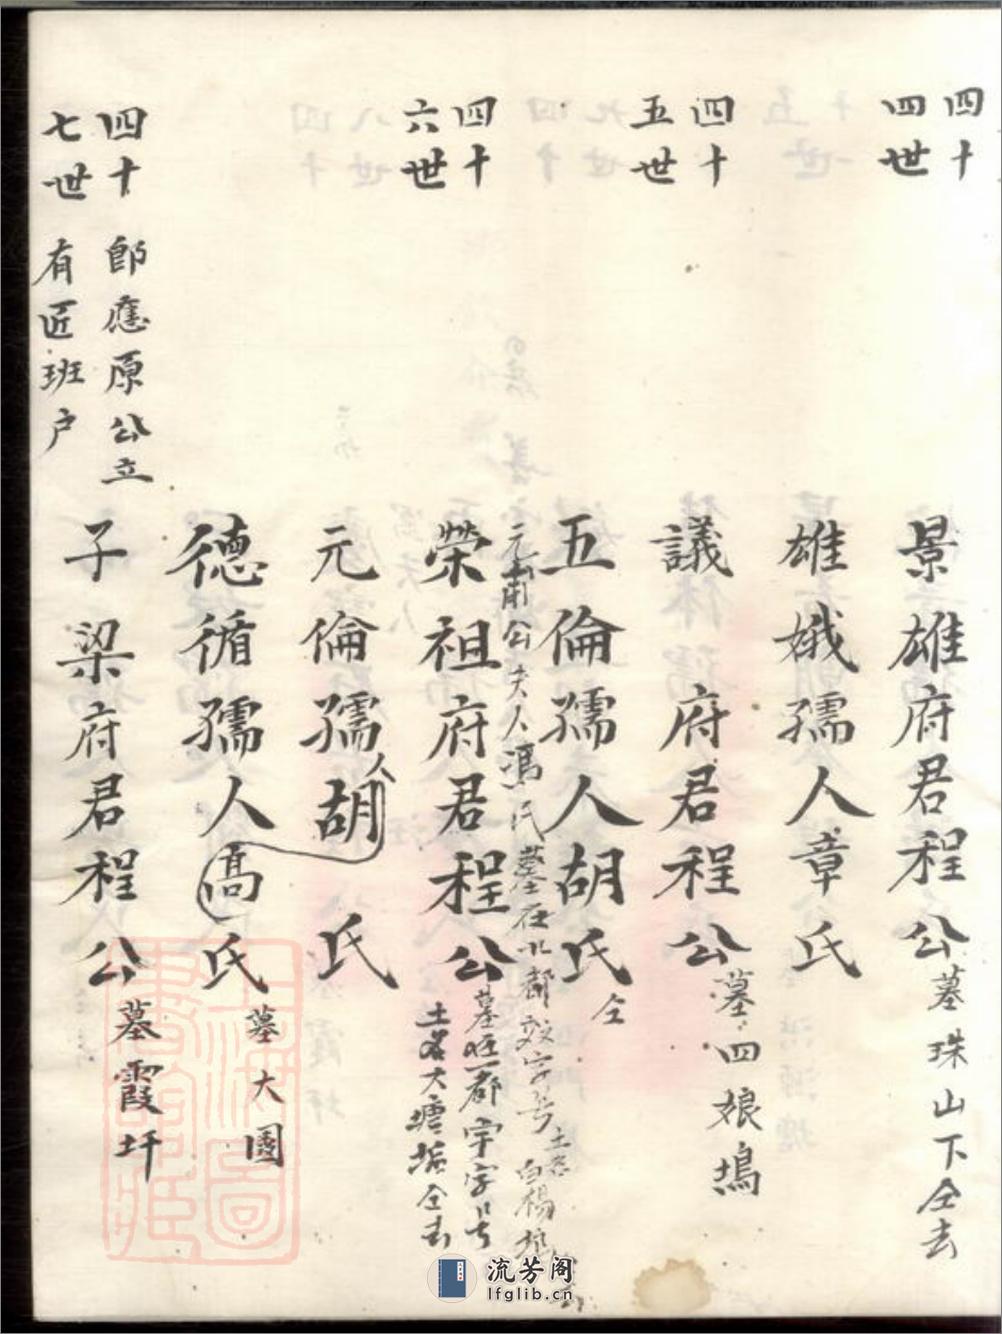 四十四世
景雄府君程公 墓珠山下仝去
雄娥孺人章氏
四十五世
議府君程公 墓四娘塢
五倫孺人胡氏 仝
元甫公夫人馮氏墓在北都字号土名白楊
四十六世
榮祖府君程公 墓一都字号土名大塘仝去
元倫孺人胡氏
德循孺人高氏 墓大園
四十七世
郎應原公立有匠班户
子梁府君程公 墓霞圩
流芳阁
lfglib.cn